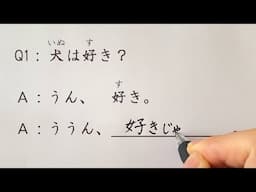 いぬ す
Q1：犬は好き？
す
A：うん、 好き。
A：ううん、 好きじゃ 。